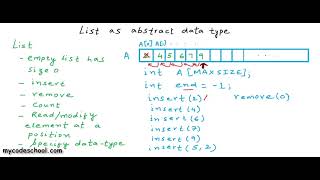 List as abstract data type
List
- empty list has
size 0
- insert
- remove
- Count
- Read/modify
element at a
position
- Specify data-type
mycodeschool.com
A[0] A[1] . . . .
A 2 4 5 6 7 9
int A[MAXSIZE];
int end = -1;
insert(2) remove(0)
insert(4)
insert(6)
insert(7)
insert(9)
insert(5,2)